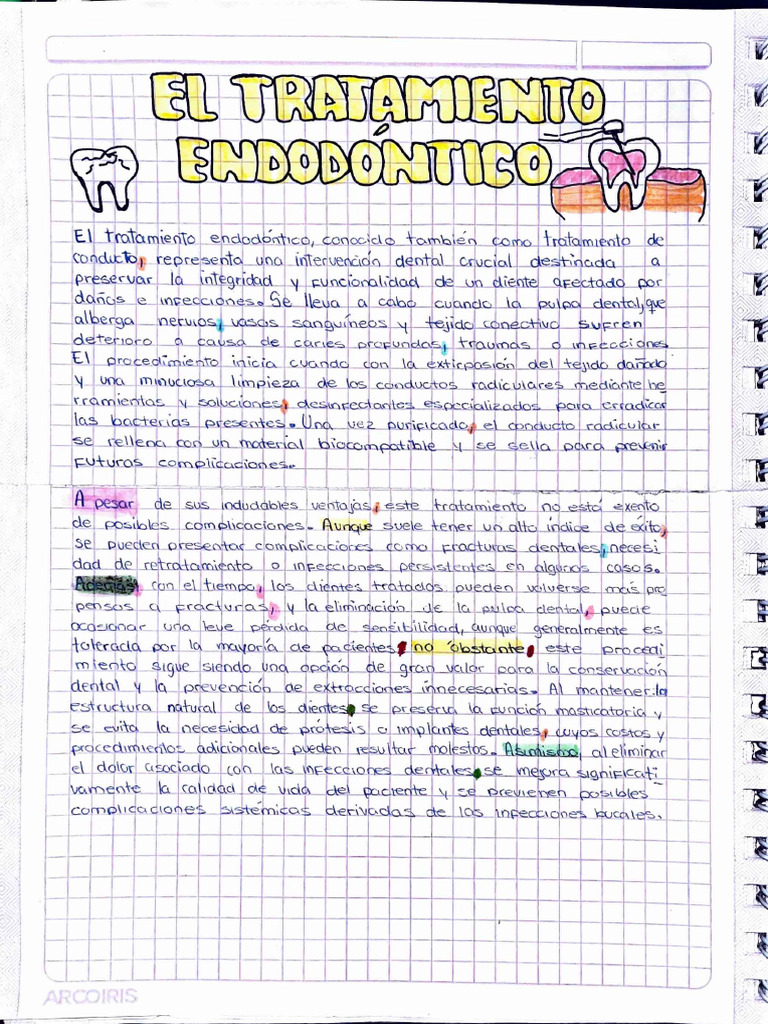 EL TRATAMIENTO
ENDODÓNTICO
El tratamiento endodóntico, conocido también como tratamiento de
conducto, representa una intervención dental crucial destinada a
preservar la integridad y funcionalidad de un diente afectado por
daños e infecciones. Se lleva a cabo cuando la pulpa dental, que
alberga nervios, vasos sanguíneos y tejido conectivo sufren
deterioro a causa de caries profundas, traumas o infecciones
El procedimiento inicia cuando con la exticpasión del tejido dañado
y una minuciosa limpieza de los conductos radiculares mediante he
rramientas y soluciones, desinfectantes especializados para erradicar
las bacterias presentes. Una vez purificado, el conducto radicular
se rellena con un material biocompatible y se sella para prevenir
futuras complicaciones.
A pesar de sus indudables ventajas, este tratamiento no está exento
de posibles complicaciones. Aunque suele tener un alto índice de éxito,
se pueden presentar complicaciones como fracturas dentales, necesi
dad de retratamiento o infecciones persistentes en algunos casos.
Además, con el tiempo, los dientes tratados pueden volverse más pro
pensos a fracturas, y la eliminación de la pulpa dental, puede
ocasionar una leve pérdida de sensibilidad, aunque generalmente es
tolerada por la mayoría de pacientes, no obstante, este procedi
miento sigue siendo una opción de gran valor para la conservación
dental y la prevención de extracciones innecesarias. Al mantener la
estructura natural de los dientes, se preserva la función masticatoria y
se evita la necesidad de prótesis o implantes dentales, cuyos costos y
procedimientos adicionales pueden resultar molestos. Asimismo, al eliminar
el dolor asociado con las infecciones dentales, se mejora significati-
vamente la calidad de vida del paciente y se previenen posibles
complicaciones sistémicas derivadas de las infecciones bucales.
ARCOIRIS